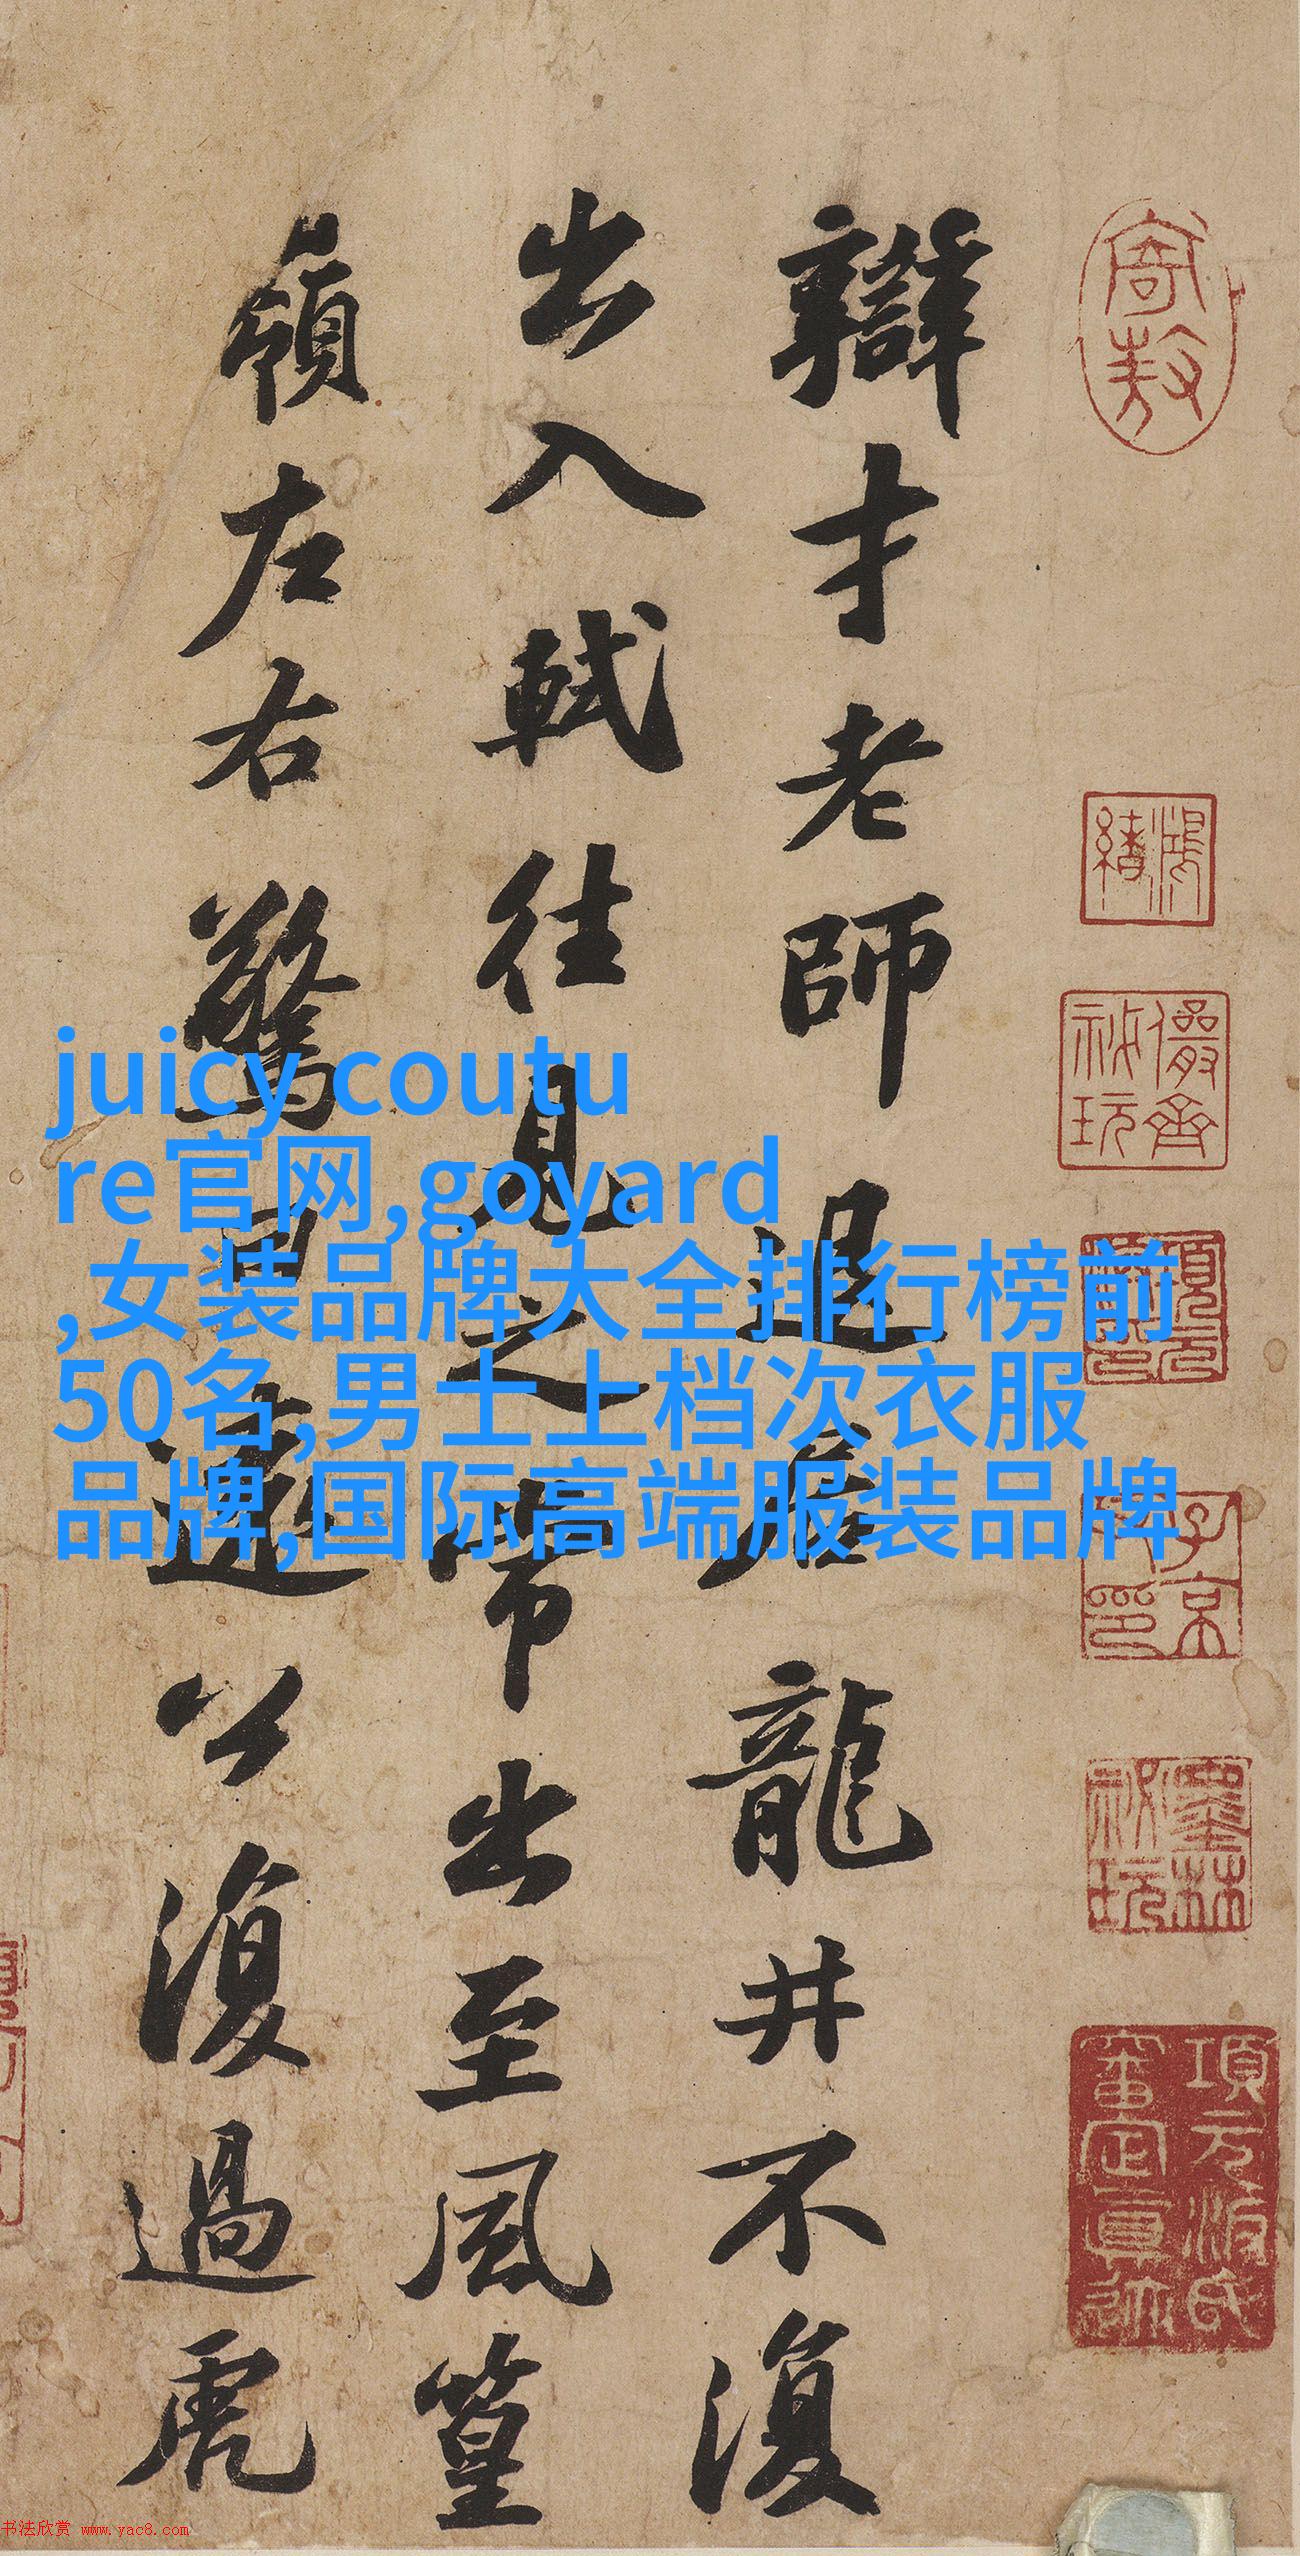 辯才老師退居龍井不復
出入軾往見之常出至風篁
嶺左右驚曰遠公復過虎
寄敖
鴻緒
儼齋
秘玩
子京
父印
墨林
秘玩
項元汴氏
審定真迹
juicy coutu
re官网,goyard
,女装品牌大全排行榜前
50名,男士上档次衣服
品牌,国际高端服装品牌
书法欣赏 www.yac8.com